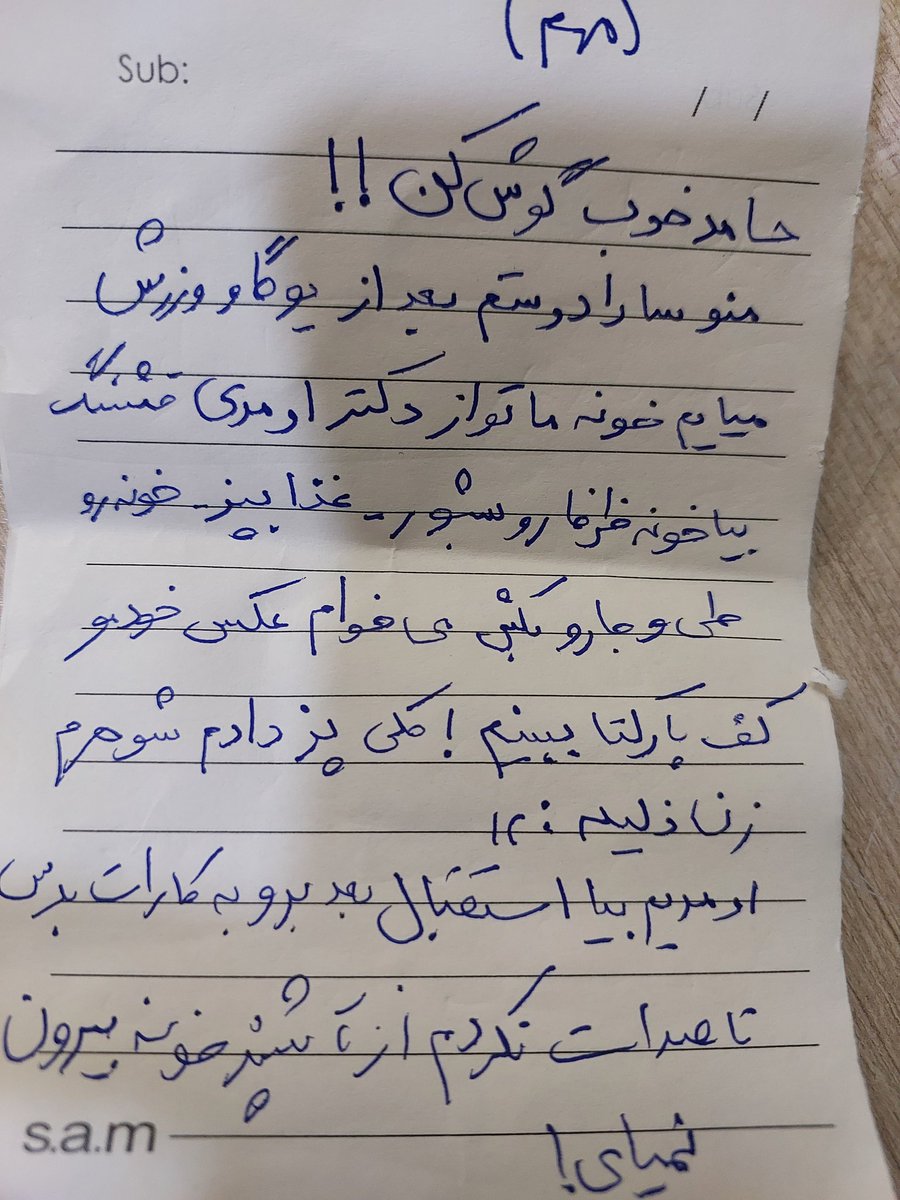 (مهم)
Sub:
/ /
حامد خوب گوش کن !!
منو سارا دوستم بعد از یوگا و ورزش
میایم خونه ما تو از دکتر اومدی قشنگ
بیا خونه ظرفا رو بشور - غذا بپز - خونه رو
طی و جارو بکش می خوام عکس خودمو
کف پارکتا ببینم ! کلی پز دادم شوهرم
زن ذلیله :
اومدیم بیا استقبال بعد برو به کارات برس
تا صدات نکردم از تو آشپزخونه بیرون
نمیای!
s.a.m